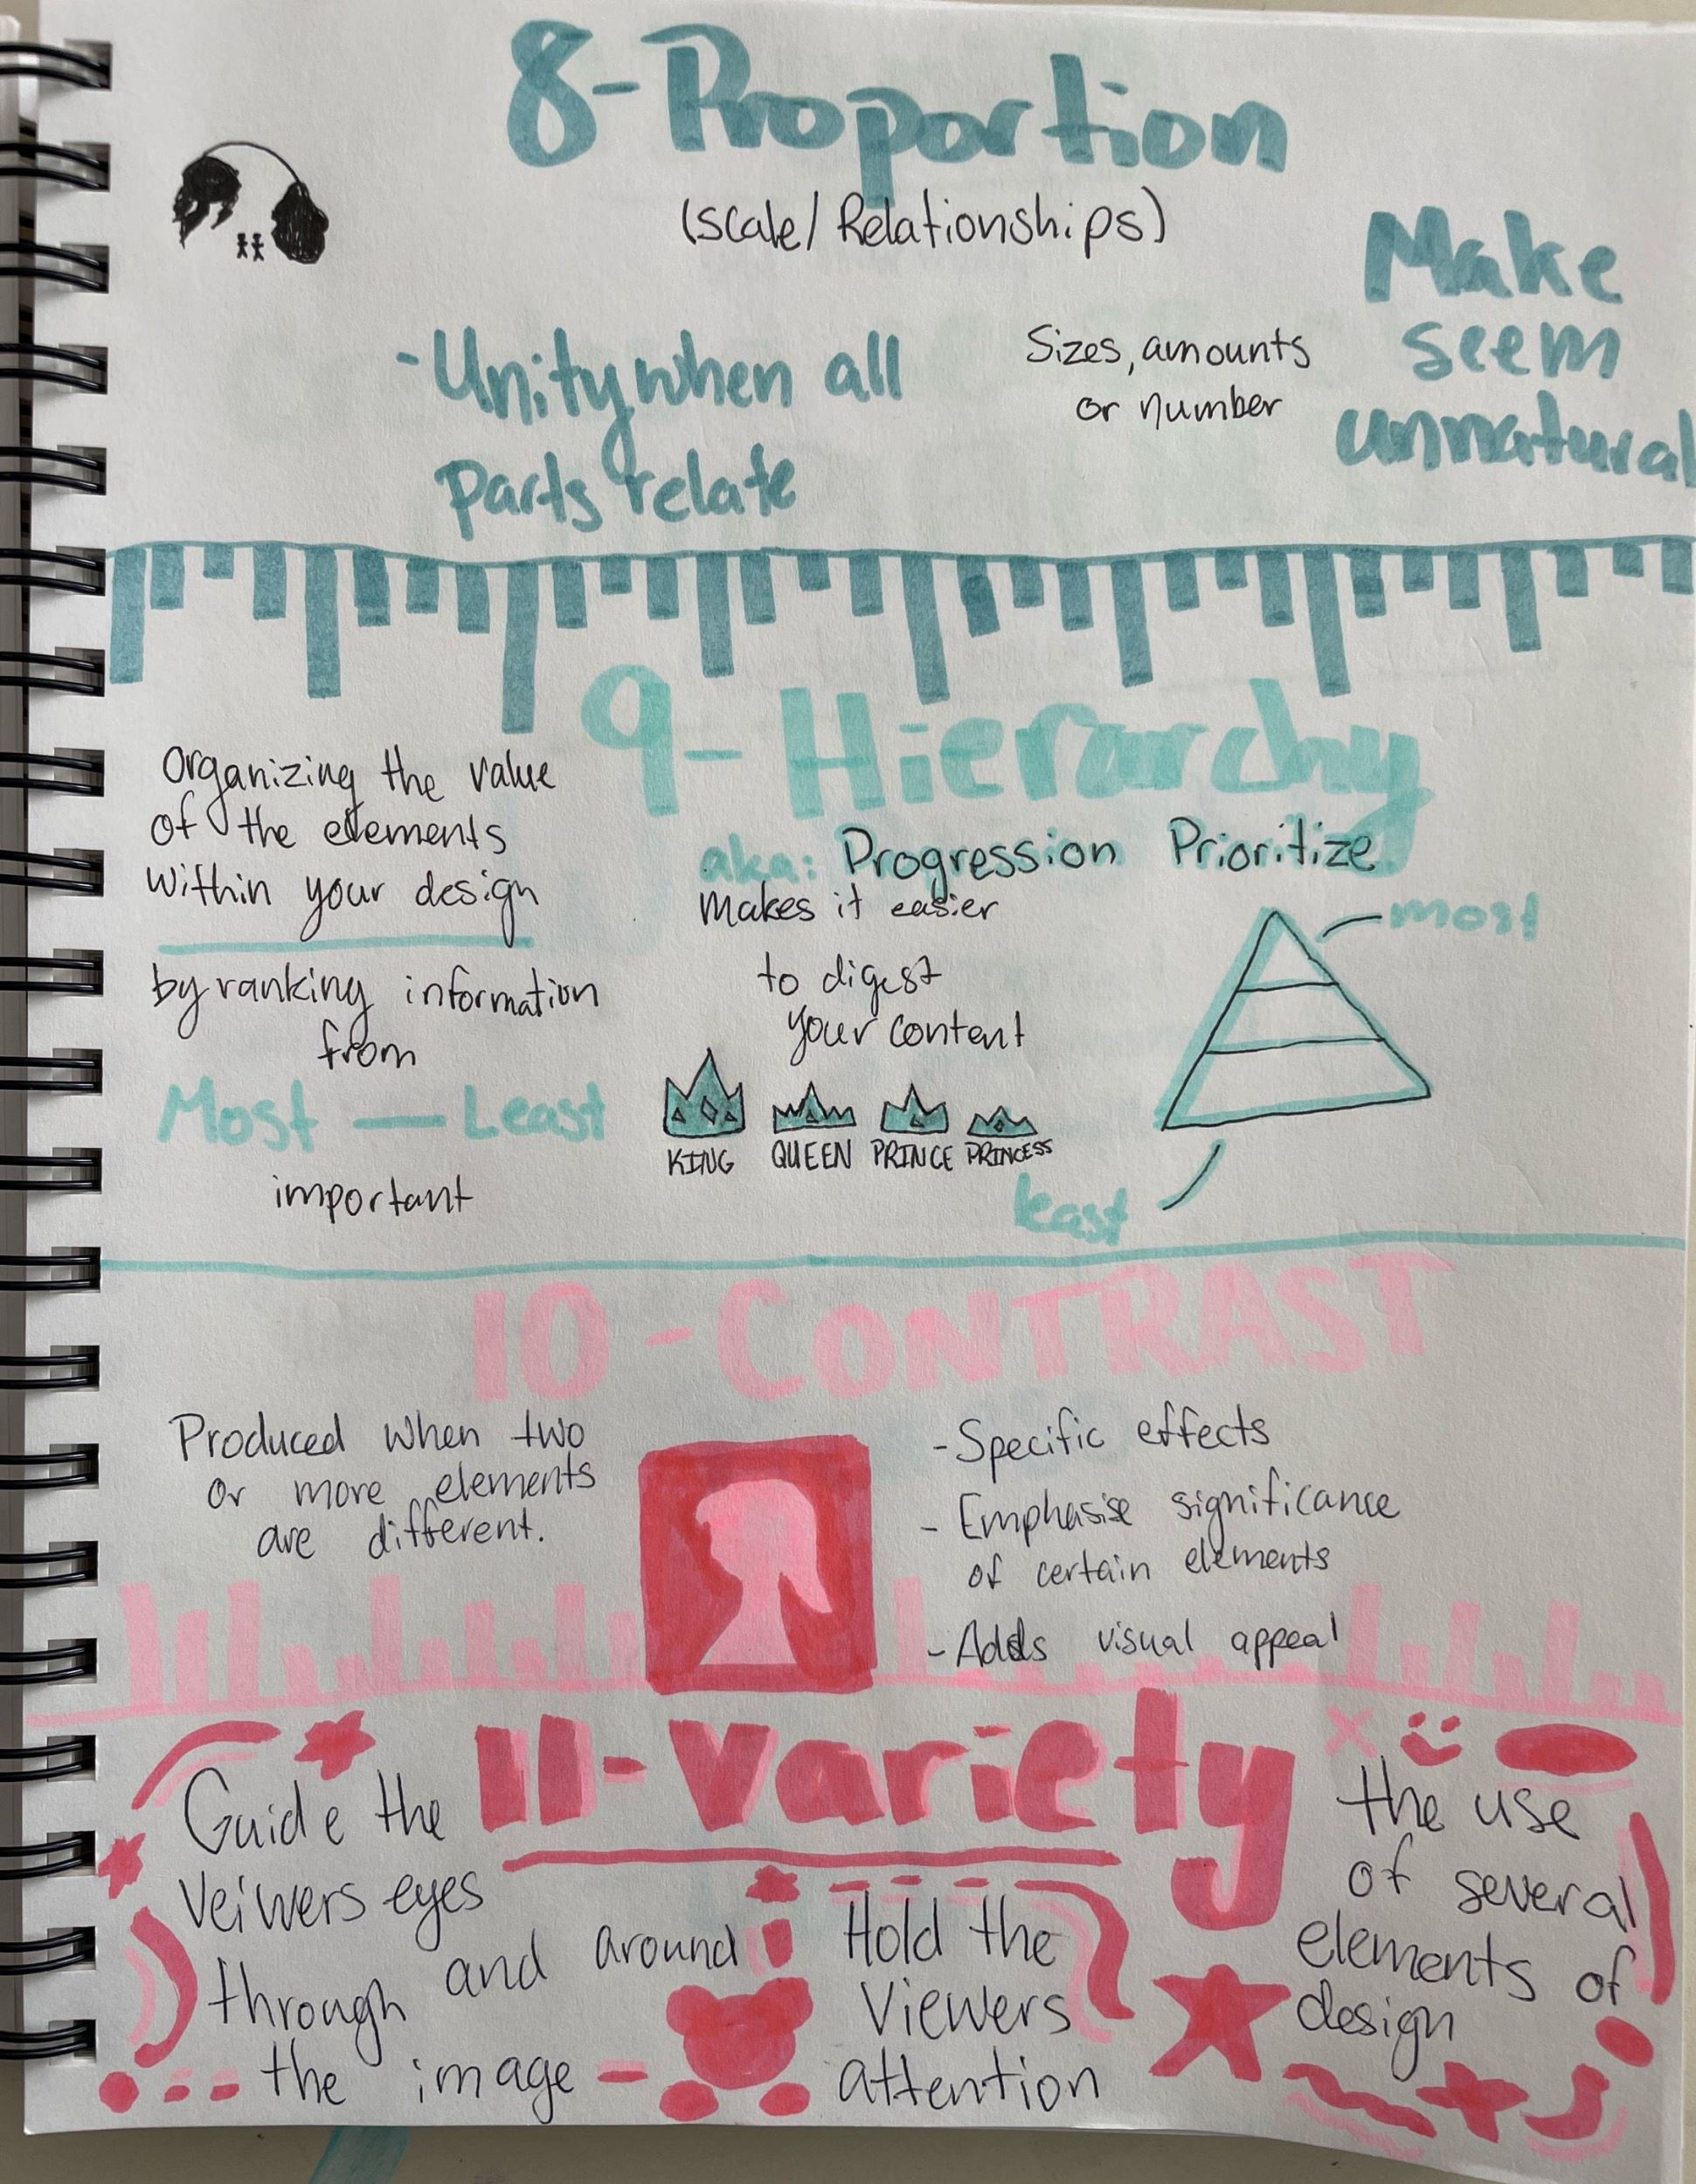 8-Proportion
(scale/Relationships)
Make
seem
unnatural
-Unity when all
parts relate
Sizes, amounts
or number
9-Hierarchy
Organizing the value
of the elements
within your design
by ranking information
from
Most — Least
important
aka: Progression Prioritize
Makes it easier
to digest
your content
KING QUEEN PRINCE PRINCESS
most
least
10-CONTRAST
Produced when two
or more elements
are different.
-Specific effects
-Emphasise significance
of certain elements
-Adds visual appeal
11-Variety
Guide the
veiwers eyes
through and around
the image
Hold the
viewers
attention
the use
of several
elements of
design